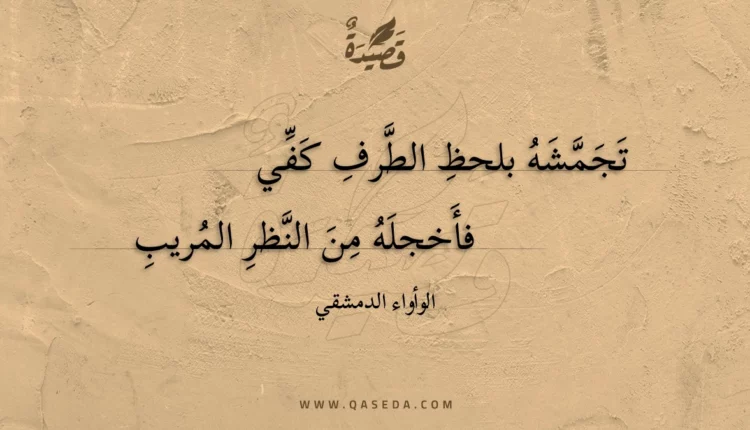 قَصِيدَةٌ
تَجَمَّشَهُ بلحظِ الطَّرفِ كَفِّي
فأَخجلَهُ مِنَ النَّظرِ المُريبِ
الوأواء الدمشقي
WWW.QASEDA.COM